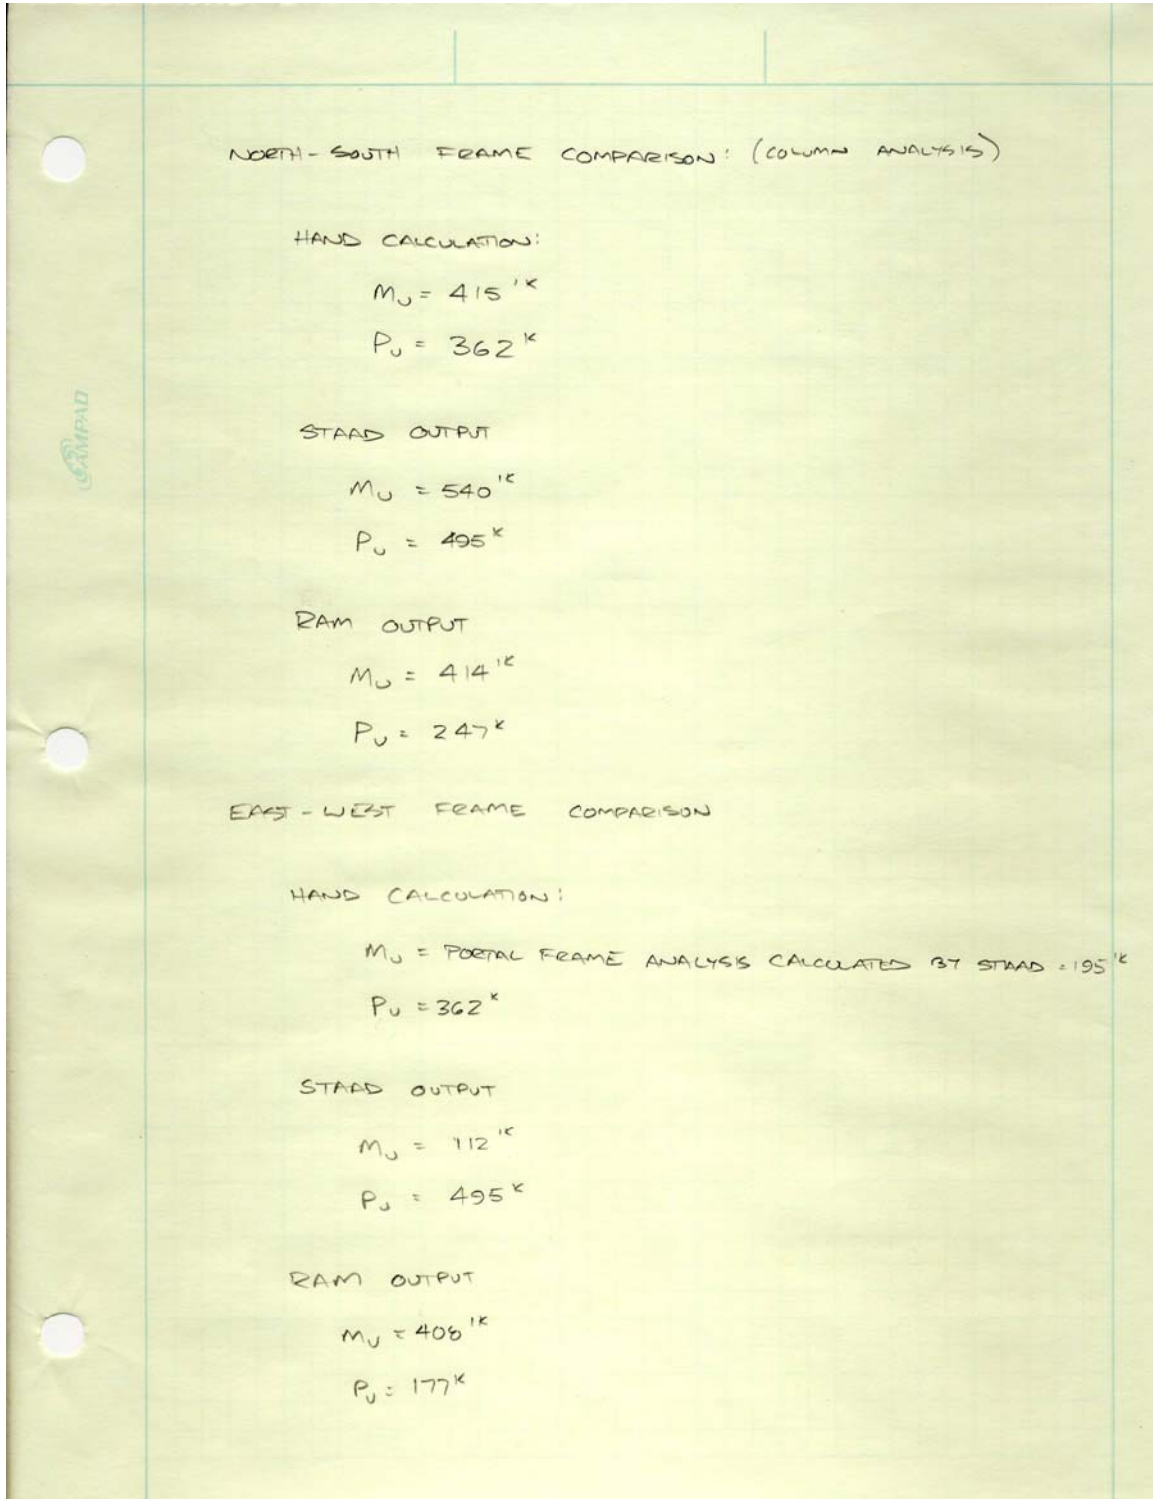 NORTH-SOUTH FRAME COMPARISON: (COLUMN ANALYSIS)
HAND CALCULATION:
MU = 415'K
PU = 362K
CAMPAD
STAAD OUTPUT
MU = 540'K
PU = 495K
RAM OUTPUT
MU = 414'K
PU = 247K
EAST-WEST FRAME COMPARISON
HAND CALCULATION:
MU = PORTAL FRAME ANALYSIS CALCULATED BY STAAD = 195'K
PU = 362K
STAAD OUTPUT
MU = 112'K
PU = 495K
RAM OUTPUT
MU = 408'K
PU = 177K